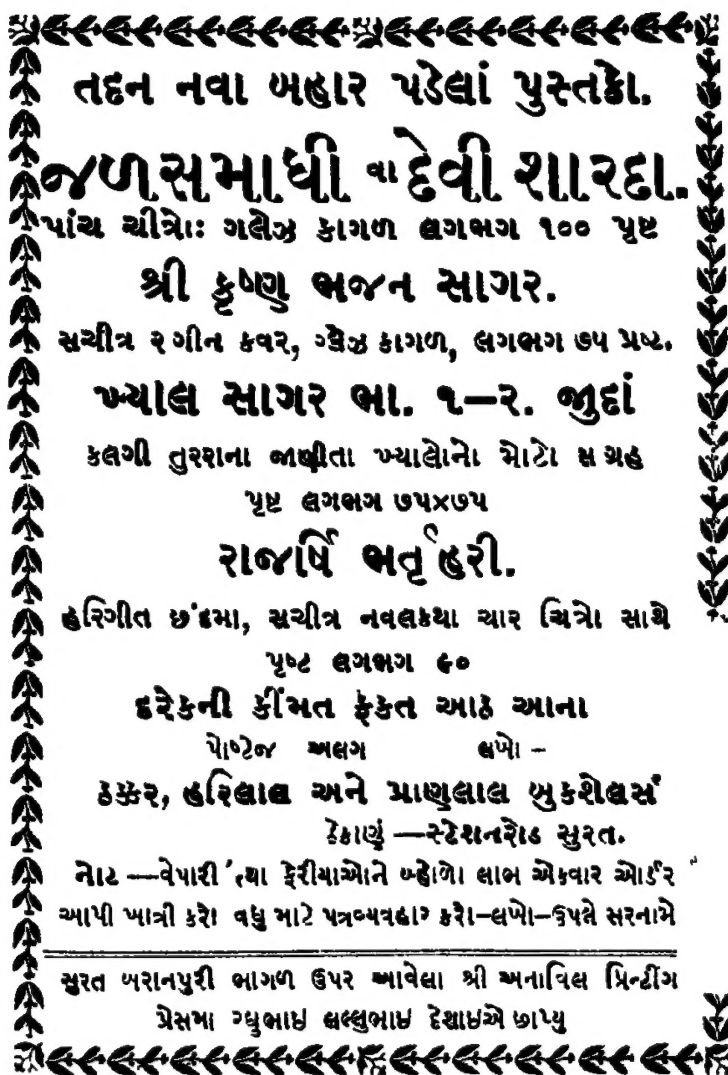 તદન નવા બહાર પડેલાં પુસ્તકો.
જળસમાધી વા દેવી શારદા.
પાંચ ચીત્રોઃ ગલેઝ કાગળ લગભગ ૧૦૦ પૃષ્ટ
શ્રી કૃષ્ણ ભજન સાગર.
સચીત્ર રગીન કવર, ગ્લેઝ કાગળ, લગભગ ૭૫ પ્રષ્ટ.
ખ્યાલ સાગર ભા. ૧—૨. જુદાં
કલગી તુરરાના જાણીતા ખ્યાલોનો મોટો સગ્રહ
પૃષ્ટ લગભગ ૭૫×૭૫
રાજર્ષિ ભર્તૃહરી.
હરિગીત છંદમા, સચીત્ર નવલકથા ચાર ચિત્રો સાથે
પૃષ્ટ લગભગ ૯૦
દરેકની કીંમત ફક્ત આઠ આના
પોષ્ટેજ અલગ લખો –
ઠક્કર, હરિલાલ અને પ્રાણલાલ બુકશેલર્સ
ઠેકાણું —સ્ટેશનરોડ સુરત.
નોટ —વેપારી તથા ફેરીયાઓને બ્હોળો લાભ એકવાર ઓર્ડર
આપી ખાત્રી કરો વધુ માટે પત્રવ્યવહાર કરો–લખો–ઉપલે સરનામે
સુરત બરાનપુરી ભાગળ ઉપર આવેલા શ્રી અનાવિલ પ્રિન્ટીંગ
પ્રેસમા લલ્લુભાઇ દેશાઇએ છાપ્યુ